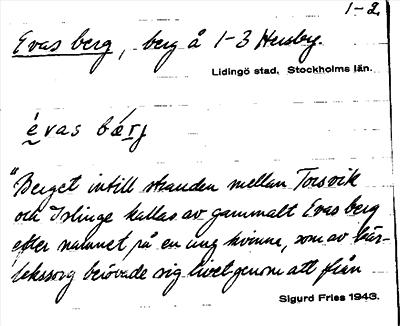 1-2.
Evas berg, berg å 1-3 Hersby.
Lidingö stad, Stockholms län.
évas bærj
"Berget intill stranden mellan Torsvik
och Islinge kallas av gammalt Evas berg
efter namnet på en ung kvinna, som av kär-
lekssorg berövade sig livet genom att från
Sigurd Fries 1943.